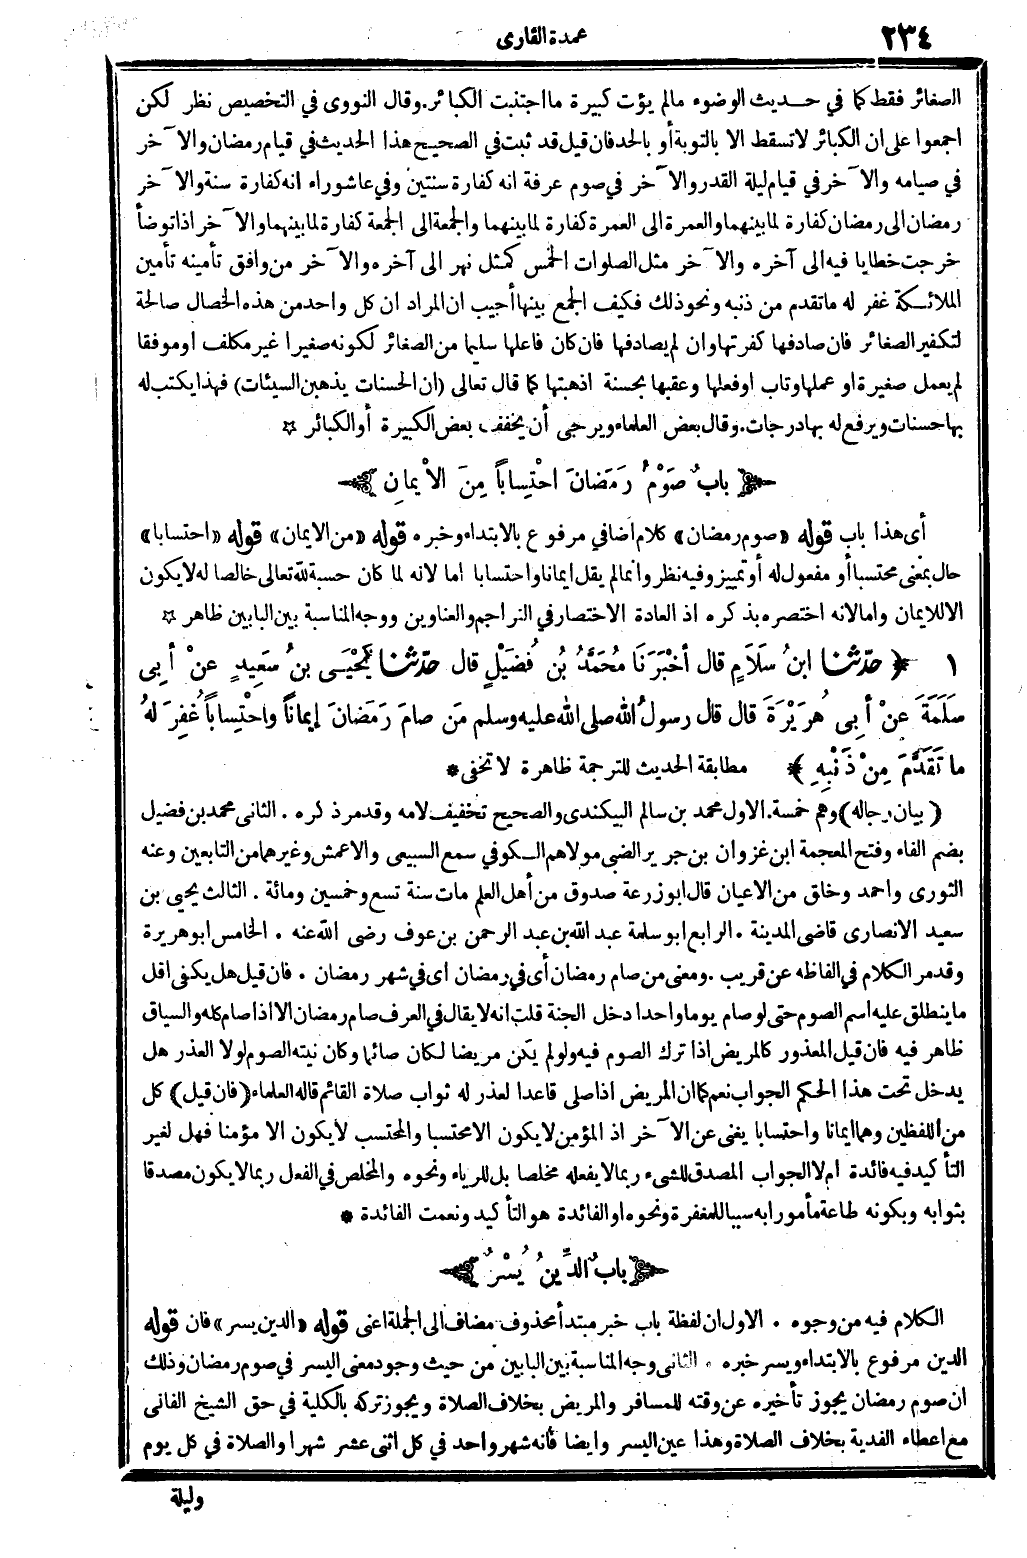 ٢٣٤
عمدة القارى
الصغائر فقط كما في حديث الوضوء مالم يؤت كبيرة ما اجتنبت الكبائر. وقال النووى في التخصيص نظر لكن
اجمعوا على ان الكبائر لا تسقط الا بالتوبة أو بالحد فان قيل قد ثبت في الصحيح هذا الحديث في قيام رمضان والآخر
في صيامه والآخر في قيام ليلة القدر والآخر في صوم عرفة انه كفارة سنتين وفي عاشوراء انه كفارة سنة والآخر
رمضان الى رمضان كفارة لما بينهما والعمرة الى العمرة كفارة لما بينهما والجمعة الى الجمعة كفارة لما بينهما والآخر اذا توضأ
خرجت خطايا فيه الى آخره والآخر مثل الصلوات الخمس كمثل نهر الى آخره والآخر من وافق تأمينه تأمين
الملائكة غفر له ما تقدم من ذنبه ونحو ذلك فكيف الجمع بينها أجيب ان المراد ان كل واحد من هذه الخصال صالحة
لتكفير الصغائر فان صادفها كفرتها وان لم يصادفها فان كان فاعلها سليما من الصغائر لكونه صغيرا غير مكلف أو موفقا
لم يعمل صغيرة او عملها وتاب او فعلها وعقبها بحسنة اذهبتها كما قال تعالى (ان الحسنات يذهبن السيئات) فهذا يكتب له
بها حسنات ويرفع له بها درجات. وقال بعض العلماء ويرجى أن يخفف بعض الكبيرة أو الكبائر ☆
﴿ بابٌ صَوْمُ رَمَضَانَ احْتِسَاباً مِنَ الْأِيمَانِ ﴾
أى هذا باب قوله «صوم رمضان» كلام اضافي مرفوع بالابتداء وخبره قوله «من الايمان» قوله «احتسابا»
حال بمعنى محتسبا أو مفعول له أو تمييز وفيه نظر وانما لم يقل ايمانا واحتسابا اما لانه لما كان حسبة لله تعالى خالصا له لا يكون
الا للايمان واما لانه اختصره بذكره اذ العادة الاختصار في التراجم والعناوين ووجه المناسبة بين البابين ظاهر ☆
١ - ﴿ حدّثنا ابنُ سَلَامٍ قال أخْبَرَنَا مُحَمَّدُ بْنُ فُضَيْلٍ قال حدّثنا يَحْيَى بنُ سَعِيدٍ عنْ أبِى
سَلَمَةَ عنْ أبِى هُرَيْرَةَ قال قال رسولُ الله صلى الله عليه وسلم مَن صامَ رَمَضَانَ إيمَاناً واحْتِساباً غُفِرَ لَهُ
ما تَقَدَّمَ مِنْ ذَنْبِهِ ﴾ مطابقة الحديث للترجمة ظاهرة لا تخفى *
(بيان رجاله) وهم خمسة. الاول محمد بن سالم البيكندى والصحيح تخفيف لامه وقد مر ذكره . الثانى محمد بن فضيل
بضم الفاء وفتح المعجمة ابن غزوان بن جرير الضبى مولاهم الكوفي سمع السبيعى والاعمش وغيرهما من التابعين وعنه
الثورى واحمد وخلق من الاعيان قال ابو زرعة صدوق من أهل العلم مات سنة تسع وخمسين ومائة . الثالث يحيى بن
سعيد الانصارى قاضى المدينة . الرابع ابو سلمة عبد الله بن عبد الرحمن بن عوف رضى الله عنه . الخامس ابو هريرة
وقد مر الكلام في الفاظه عن قريب . ومعنى من صام رمضان أى في رمضان اى في شهر رمضان . فان قيل هل يكفى اقل
ما ينطلق عليه اسم الصوم حتى لو صام يوما واحدا دخل الجنة قلت انه لا يقال في العرف صام رمضان الا اذا صام كله والسياق
ظاهر فيه فان قيل المعذور كالمريض اذا ترك الصوم فيه ولو لم يكن مريضا لكان صائما وكان نيته الصوم لولا العذر هل
يدخل تحت هذا الحكم الجواب نعم كما ان المريض اذا صلى قاعدا لعذر له ثواب صلاة القائم قاله العلماء (فان قيل) كل
من اللفظين وهما ايمانا واحتسابا يغنى عن الآخر اذ المؤمن لا يكون الا محتسبا والمحتسب لا يكون الا مؤمنا فهل لغير
التأكيد فيه فائدة ام لا الجواب المصدق للشىء ربما لا يفعله مخلصا بل للرياء ونحوه والمخلص في الفعل ربما لا يكون مصدقا
بثوابه وبكونه طاعة مأمورا به سببا للمغفرة ونحوه او الفائدة هو التأكيد ونعمت الفائدة *
﴿ بابٌ الدِّينُ يُسْرٌ ﴾
الكلام فيه من وجوه . الاول ان لفظة باب خبر مبتدأ محذوف مضاف الى الجملة اعنى قوله «الدين يسر» فان قوله
الدين مرفوع بالابتداء ويسر خبره . الثانى وجه المناسبة بين البابين من حيث وجود معنى اليسر في صوم رمضان وذلك
ان صوم رمضان يجوز تأخيره عن وقته للمسافر والمريض بخلاف الصلاة ويجوز تركه بالكلية في حق الشيخ الفانى
مع اعطاء الفدية بخلاف الصلاة وهذا عين اليسر وايضا فانه شهر واحد في كل اثنى عشر شهرا والصلاة في كل يوم
وليلة